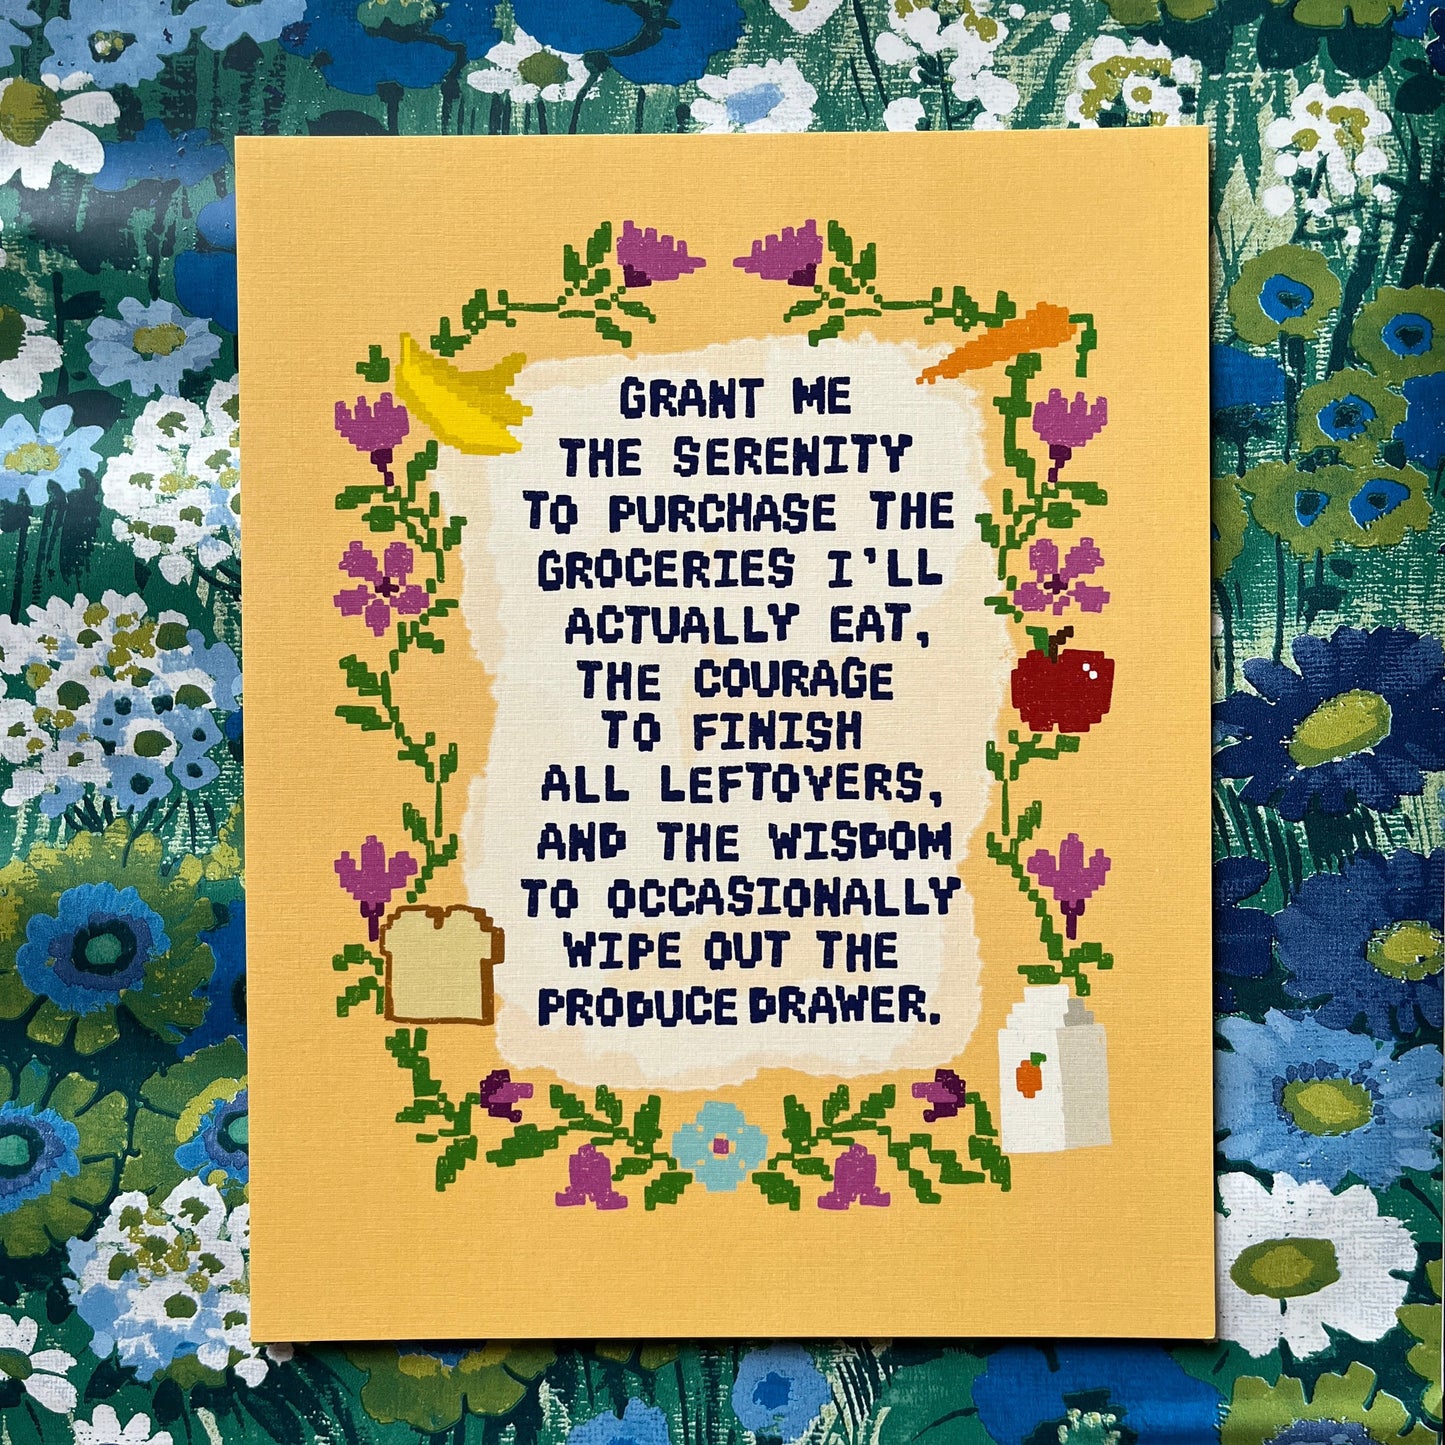 GRANT ME
THE SERENITY
TO PURCHASE THE
GROCERIES I'LL
ACTUALLY EAT,
THE COURAGE
TO FINISH
ALL LEFTOVERS,
AND THE WISDOM
TO OCCASIONALLY
WIPE OUT THE
PRODUCE DRAWER.